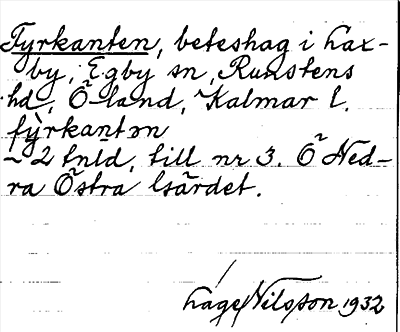 Fyrkanten, beteshag i Lax-
by, Egby sn, Runstens
hd, Öland, Kalmar l.
fy̍rkantən
~ 2 tnld, till nr 3. Ö Ned-
ra Östra Gärdet.
Åge Nilsson 1932